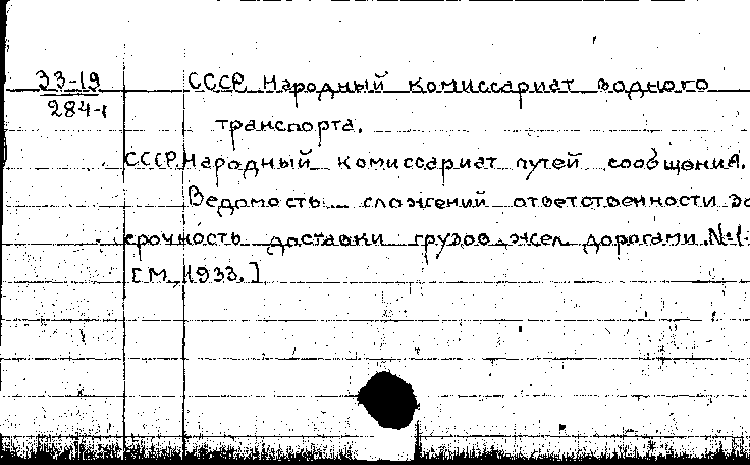 33-19
284-1
СССР. Народный комиссариат водного
транспорта.
СССР. Народный комиссариат путей сообщения.
Ведомость сложений ответственности за
срочность доставки грузов жел. дорогами. №1-
[М., 1933.]